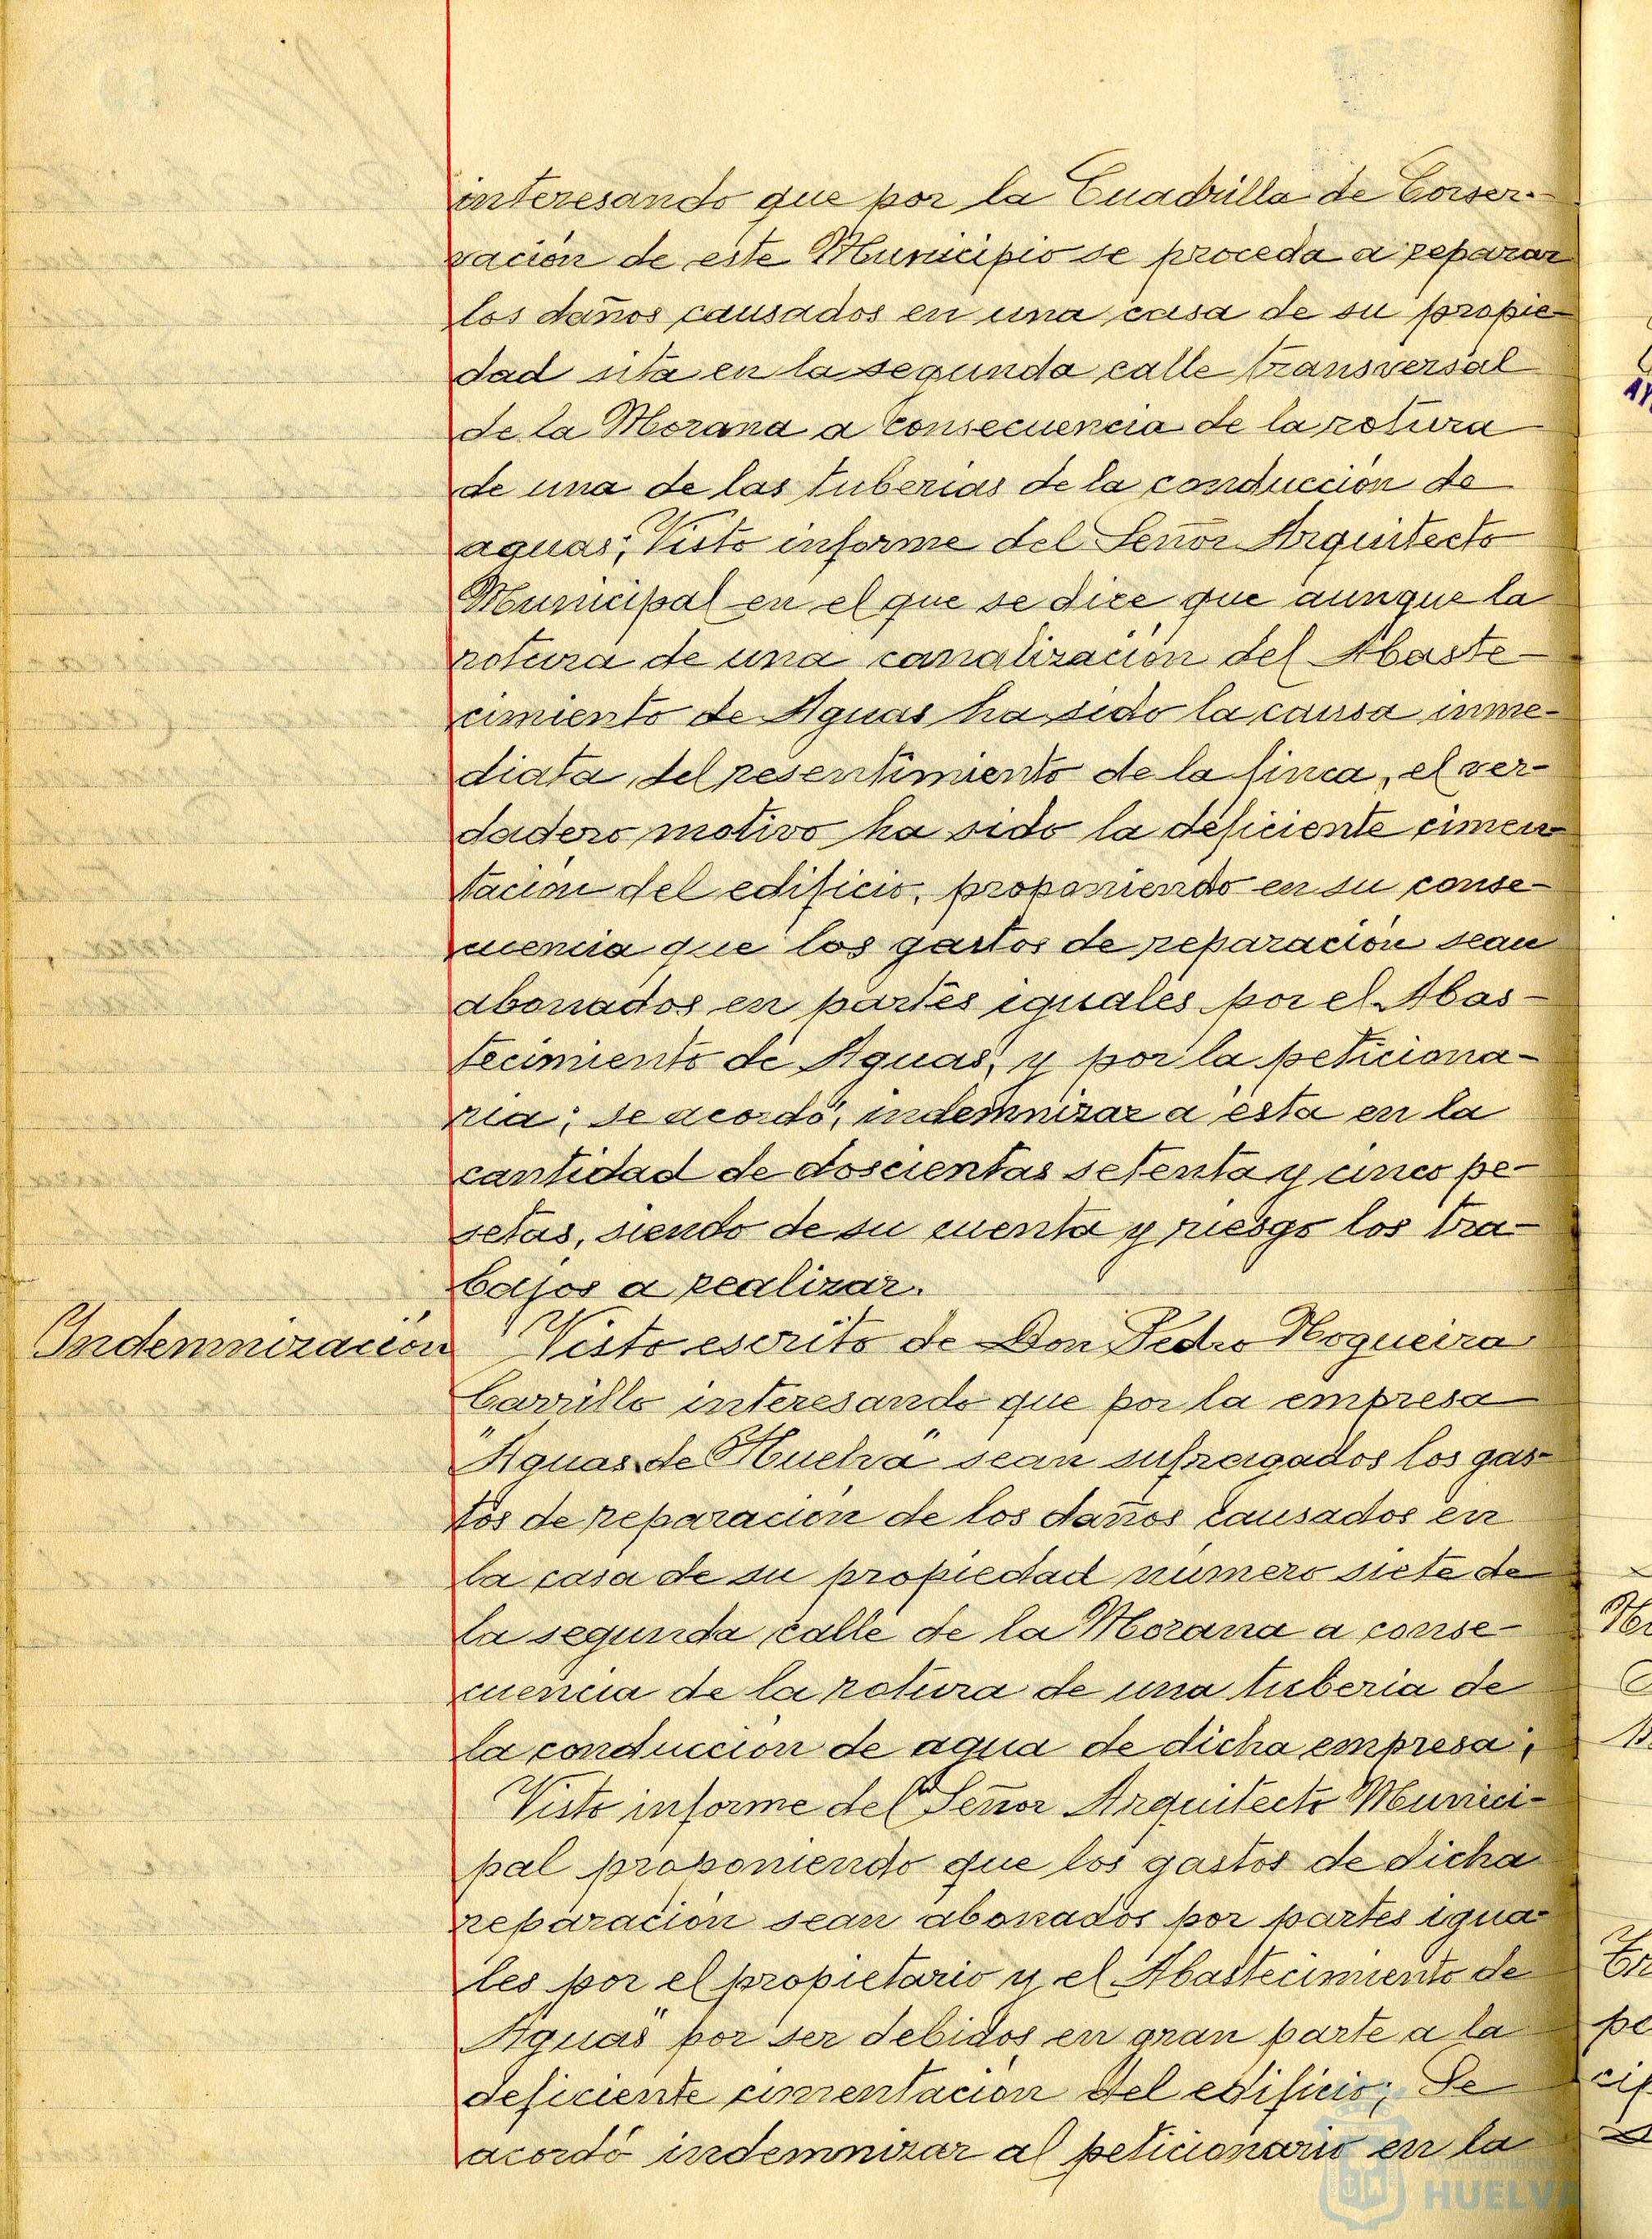 interesando que por la Cuadrilla de Conser-
vación de este Municipio se proceda a reparar
los daños causados en una casa de su propie-
dad sita en la segunda calle transversal
de la Morana a consecuencia de la rotura
de una de las tuberias de la conducción de
aguas; Visto informe del Señor Arquitecto
Municipal en el que se dice que aunque la
rotura de una canalización del Abaste-
cimiento de Aguas ha sido la causa inme-
diata del resentimiento de la finca, el ver-
dadero motivo ha sido la deficiente cimen
tación del edificio, proponiendo en su conse-
cuencia que los gastos de reparación sean
abonados en partes iguales por el Abas-
tecimiento de Aguas, y por la peticiona-
ria; se acordó, indemnizar a esta en la
cantidad de doscientas setenta y cinco pe-
setas, siendo de su cuenta y riesgo los tra-
bajos a realizar.
Indemnización Visto escrito de Don Pedro Nogueira
Carrillo interesando que por la empresa
"Aguas de Huelva" sean sufragados los gas-
tos de reparación de los daños causados en
la casa de su propiedad número siete de
la segunda calle de la Morana a conse-
cuencia de la rotura de una tuberia de
la conducción de agua de dicha empresa;
Visto informe del Señor Arquitecto Munici-
pal proponiendo que los gastos de dicha
reparación sean abonados por partes igua-
les por el propietario y el Abastecimiento de
Aguas" por ser debidos en gran parte a la
deficiente cimentación del edificio; Se
acordó indemnizar al peticionario en la
Ayuntamiento de
HUELVA